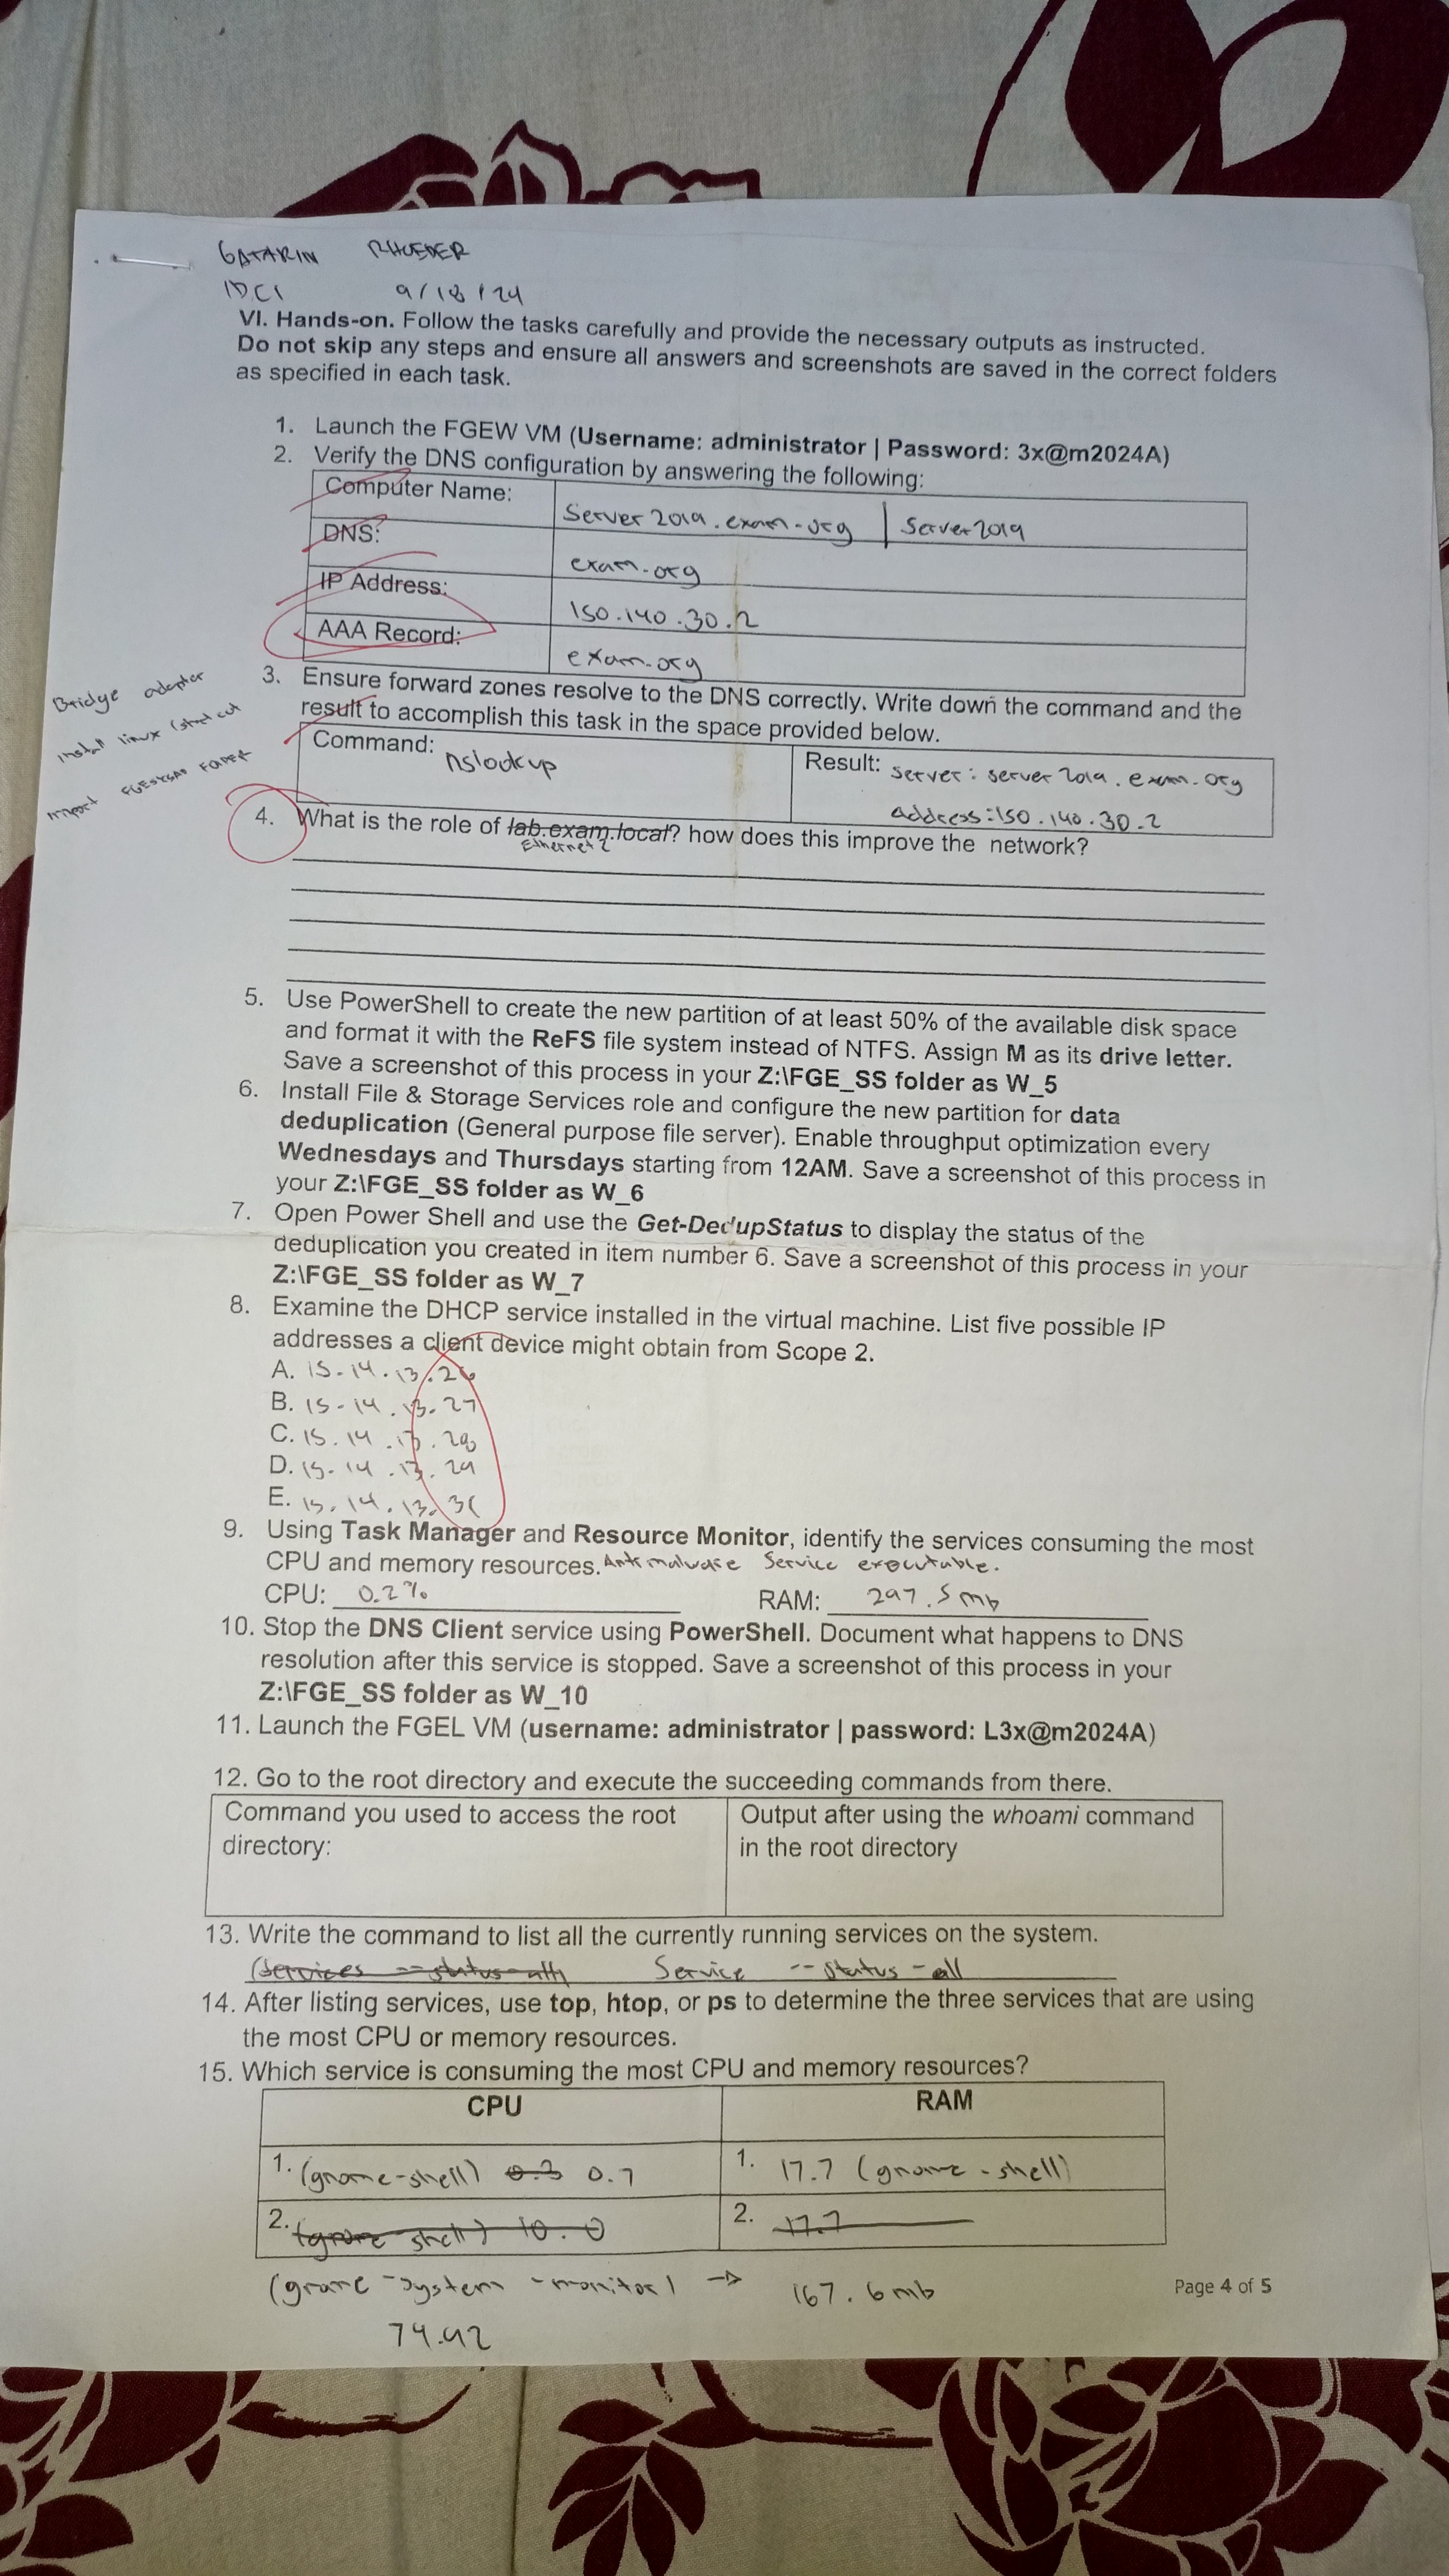 GATARIN RHUEDER
IDC1 9/18/24
VI. Hands-on. Follow the tasks carefully and provide the necessary outputs as instructed.
Do not skip any steps and ensure all answers and screenshots are saved in the correct folders
as specified in each task.
1. Launch the FGEW VM (Username: administrator | Password: 3x@m2024A)
2. Verify the DNS configuration by answering the following:
Computer Name: Server 2019.exam.org | Server2019
DNS: exam.org
IP Address: 150.140.30.2
AAA Record: exam.org
Bridge adapter
install linux
3. Ensure forward zones resolve to the DNS correctly. Write down the command and the
result to accomplish this task in the space provided below.
Command: nslookup Result: server: server 2019.exam.org
address: 150.140.30.2
4. What is the role of lab.exam.local? how does this improve the network?
Ethernet 2
5. Use PowerShell to create the new partition of at least 50% of the available disk space
and format it with the ReFS file system instead of NTFS. Assign M as its drive letter.
Save a screenshot of this process in your Z:\FGE_SS folder as W_5
6. Install File & Storage Services role and configure the new partition for data
deduplication (General purpose file server). Enable throughput optimization every
Wednesdays and Thursdays starting from 12AM. Save a screenshot of this process in
your Z:\FGE_SS folder as W_6
7. Open Power Shell and use the Get-DedupStatus to display the status of the
deduplication you created in item number 6. Save a screenshot of this process in your
Z:\FGE_SS folder as W_7
8. Examine the DHCP service installed in the virtual machine. List five possible IP
addresses a client device might obtain from Scope 2.
A. 15.14.13.26
B. 15.14.13.27
C. 15.14.13.28
D. 15.14.13.29
E. 15.14.13.
9. Using Task Manager and Resource Monitor, identify the services consuming the most
CPU and memory resources. Antimalware Service executable.
CPU: 0.2% RAM: 297.5 mb
10. Stop the DNS Client service using PowerShell. Document what happens to DNS
resolution after this service is stopped. Save a screenshot of this process in your
Z:\FGE_SS folder as W_10
11. Launch the FGEL VM (username: administrator | password: L3x@m2024A)
12. Go to the root directory and execute the succeeding commands from there.
Command you used to access the root Output after using the whoami command
directory: in the root directory
13. Write the command to list all the currently running services on the system.
(services --status-all) Service --status-all
14. After listing services, use top, htop, or ps to determine the three services that are using
the most CPU or memory resources.
15. Which service is consuming the most CPU and memory resources?
CPU RAM
1. (gnome-shell) 0.3 0.7 1. 17.7 (gnome-shell)
2. (gnome shell) 10.0 2. 17.7
(gnome-system-monitor) → 167.6 mb
74.92
Page 4 of 5